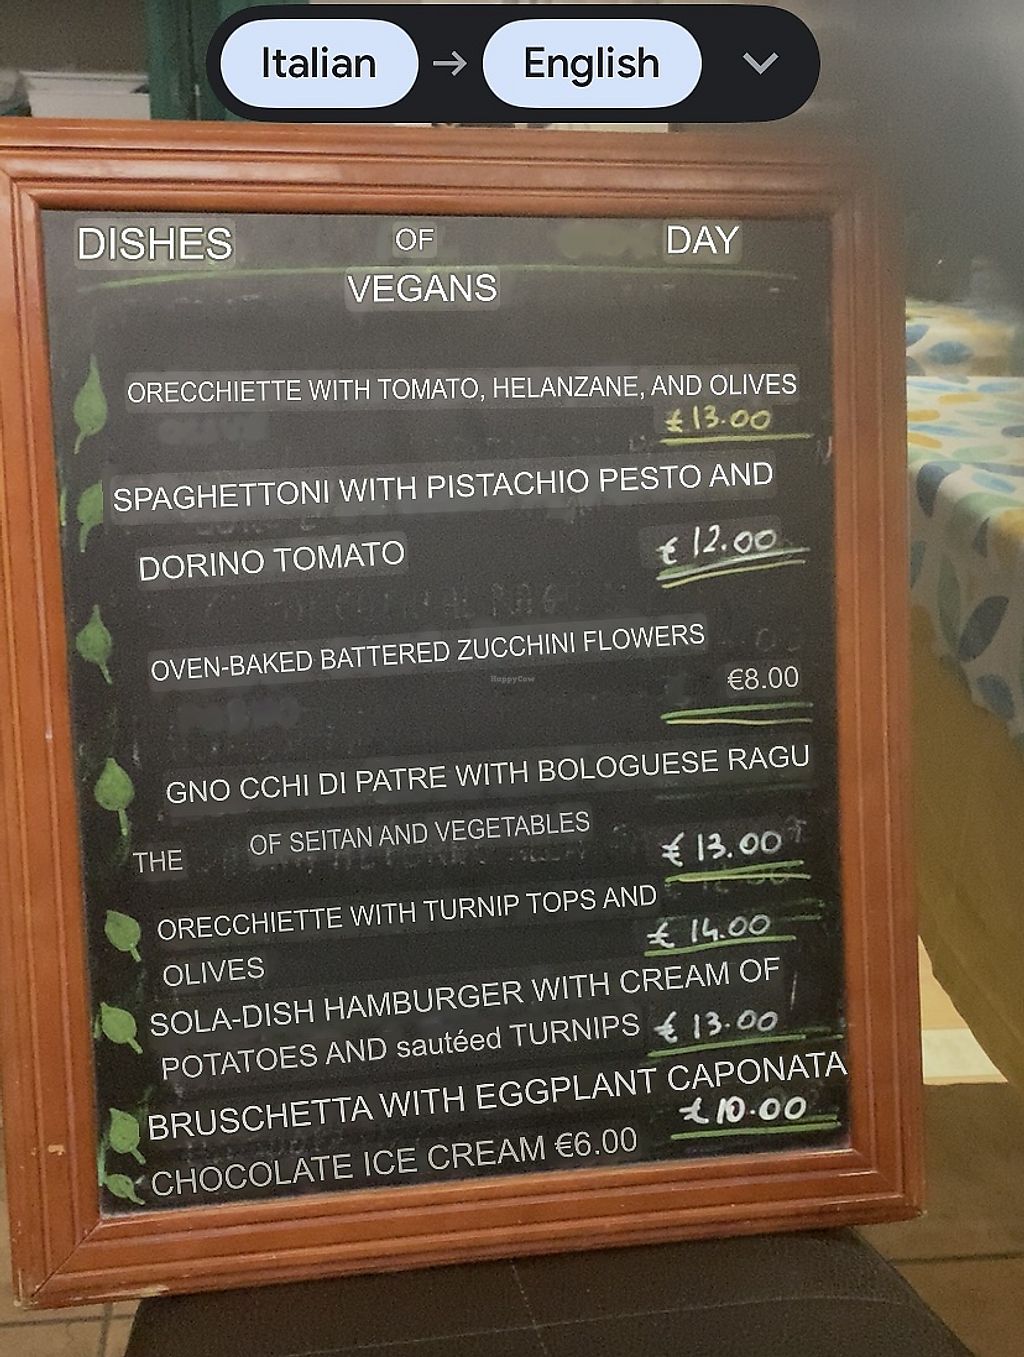 Italian → English
DISHES OF DAY
VEGANS
ORECCHIETTE WITH TOMATO, HELANZANE, AND OLIVES
€13.00
SPAGHETTONI WITH PISTACHIO PESTO AND
DORINO TOMATO €12.00
OVEN-BAKED BATTERED ZUCCHINI FLOWERS
HappyCow
€8.00
GNO CCHI DI PATRE WITH BOLOGUESE RAGU
THE OF SEITAN AND VEGETABLES €13.00
ORECCHIETTE WITH TURNIP TOPS AND
OLIVES €14.00
SOLA-DISH HAMBURGER WITH CREAM OF
POTATOES AND sautéed TURNIPS €13.00
BRUSCHETTA WITH EGGPLANT CAPONATA
€10.00
CHOCOLATE ICE CREAM €6.00